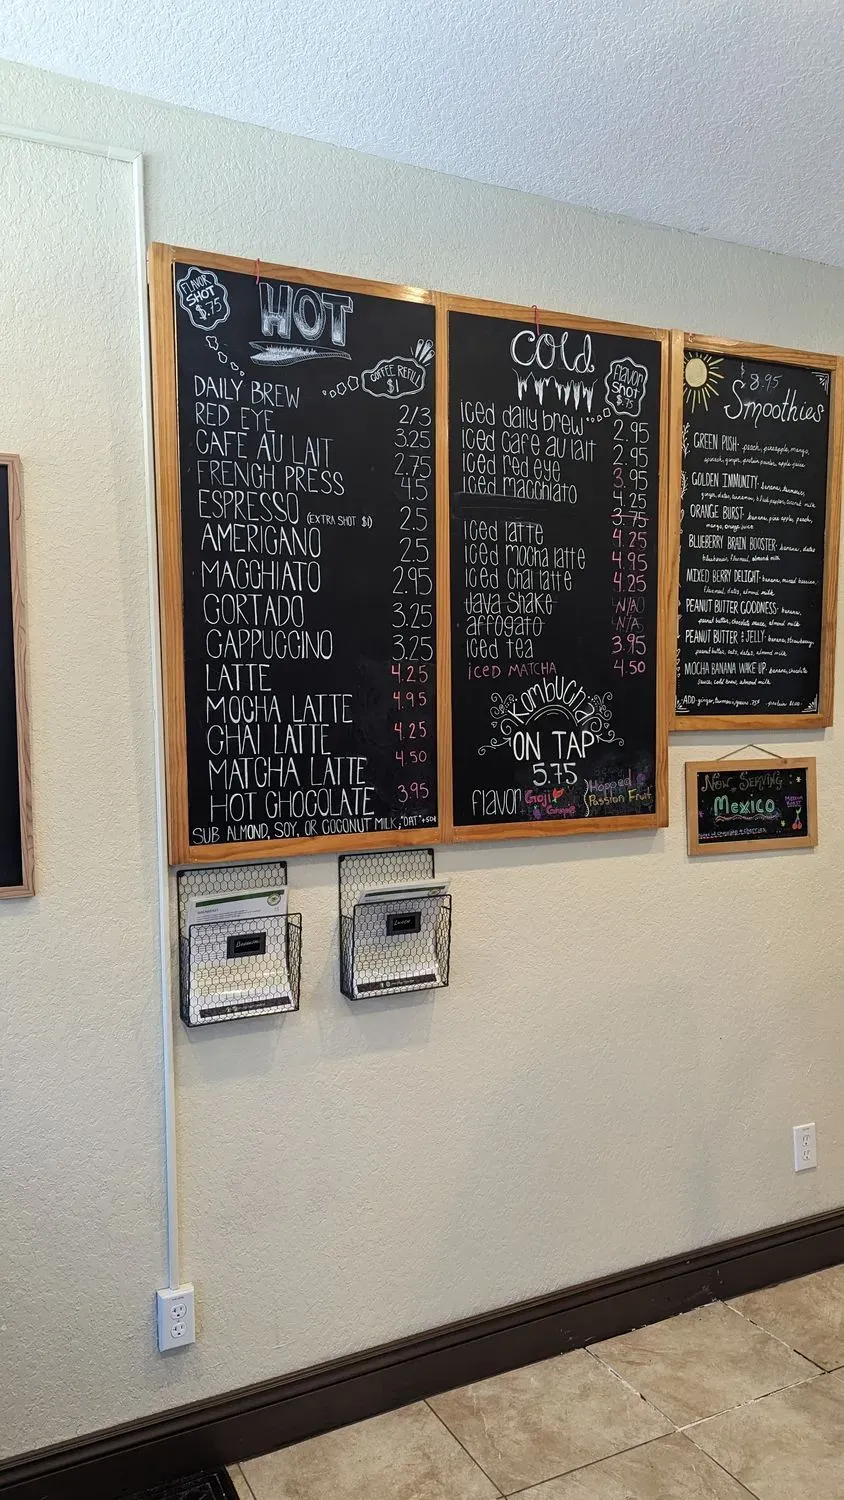 FLAVOR
SHOT
$.75
HOT
COFFEE REFILL
$1
DAILY BREW 2/3
RED EYE 3.25
CAFE AU LAIT 2.75
FRENCH PRESS 4.5
ESPRESSO (EXTRA SHOT $1) 2.5
AMERICANO 2.5
MACCHIATO 2.95
CORTADO 3.25
CAPPUCCINO 3.25
LATTE 4.25
MOCHA LATTE 4.95
CHAI LATTE 4.25
MATCHA LATTE 4.50
HOT CHOCOLATE 3.95
SUB ALMOND, SOY, OR COCONUT MILK, "OAT" +50¢
Cold
Flavor
Shot
$.75
iced daily brew 2.95
iced cafe au lait 2.95
iced red eye 3.95
iced macchiato 4.25
3.75
iced latte 4.25
iced mocha latte 4.95
iced chai latte 4.25
Java Shake N/A
affogato N/A
iced tea 3.95
iced MATCHA 4.50
Kombucha
ON TAP
5.75
flavor Goji Hopped
Grape Passion Fruit
8.95
Smoothies
GREEN PUSH- peach, pineapple, mango,
spinach, ginger, protein powder, apple juice
GOLDEN IMMUNITY- banana, turmeric,
ginger, dates, cinnamon, black pepper, coconut milk
ORANGE BURST- banana, pine apple, peach,
mango, orange juice
BLUEBERRY BRAIN BOOSTER- banana, dates
blueberries, flaxseed, almond milk
MIXED BERRY DELIGHT- banana, mixed berries,
flaxseed, dates, almond milk
PEANUT BUTTER GOODNESS- banana,
peanut butter, chocolate sauce, almond milk
PEANUT BUTTER & JELLY- banana, strawberry,
peanut butter, oats, dates, almond milk
MOCHA BANANA WAKE UP- banana, chocolate
sauce, cold brew, almond milk
ADD- ginger, turmeric, greens .75¢ - protein
Now Serving
Mexico